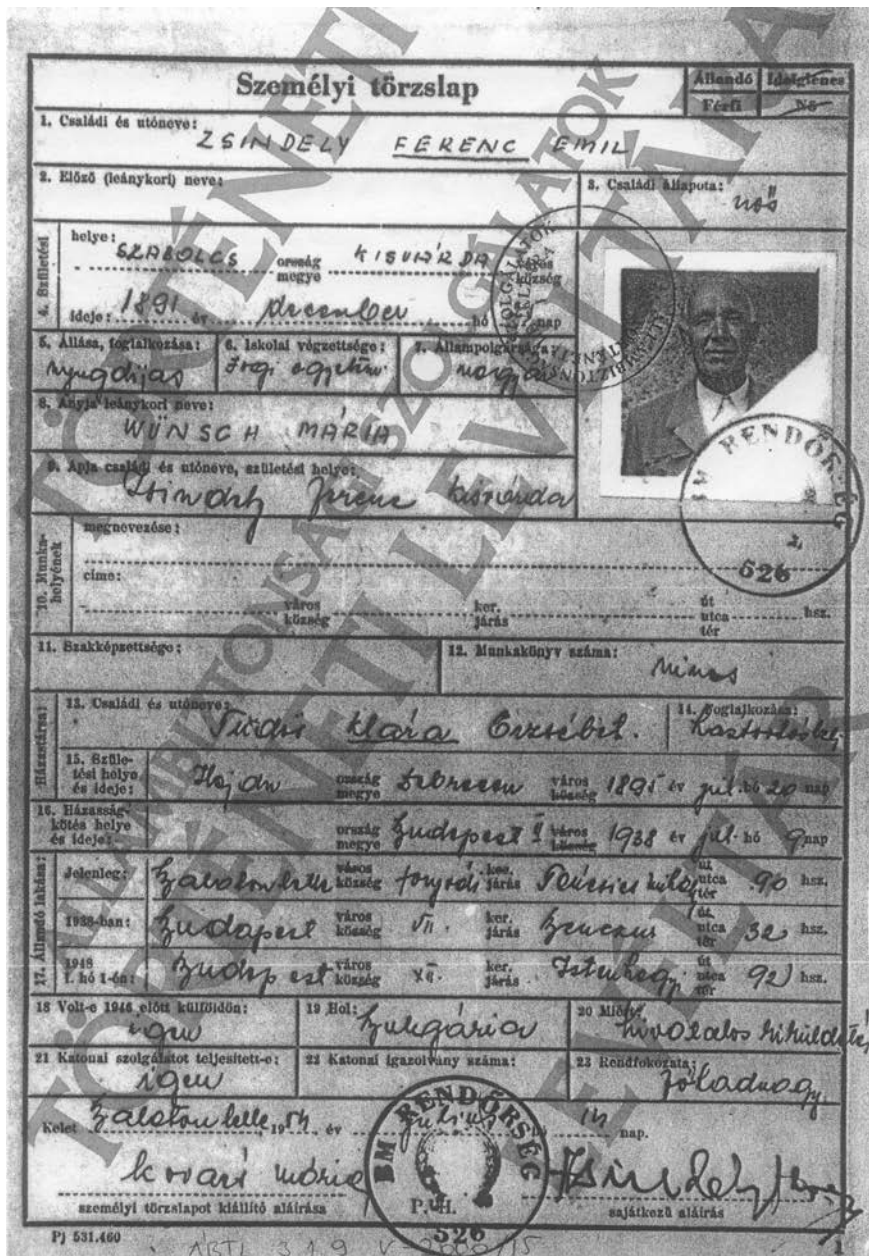 Személyi törzslap
Állandó Ideiglenes
Férfi Nő
1. Családi és utóneve:
ZSINDELY FERENC EMIL
2. Előző (leánykori) neve:
3. Családi állapota:
nős
4. Születési
helye:
SZABOLCS ország megye KISVÁRDA város község
ideje: 1891 év december hó nap
5. Állása, foglalkozása:
nyugdíjas
6. Iskolai végzettsége:
Jogi
7. Állampolgársága:
magyar
8. Anyja leánykori neve:
WÜNSCH MÁRIA
9. Apja családi és utóneve, születési helye:
Zsindely Ferenc Kisvárda
10. Munkahelyének
megnevezése:
címe:
város község ker. járás út utca tér hsz.
11. Szakképzettsége:
12. Munkakönyv száma:
nincs
Házastársa:
13. Családi és utóneve:
Tüdős Klára Erzsébet.
14. Foglalkozása:
háztartásbeli
15. Születési helye és ideje:
Hajdu ország megye Debrecen város község 1895 év júl. hó 20 nap
16. Házasságkötés helye és ideje:
ország megye Budapest II város község 1938 év júl. hó 9 nap
17. Állandó lakása:
Jelenleg: Balatonlelle város község fonyódi ker. járás Táncsics út utca tér 90 hsz.
1938-ban: Budapest város község VII. ker. járás Benczur út utca tér 32 hsz.
1948 I. hó 1-én: Budapest város község XII. ker. járás Istenhegyi út utca tér 92 hsz.
18 Volt-e 1946 előtt külföldön:
igen
19 Hol:
Bulgária
20 Miért:
hivatalos kiküldetés
21 Katonai szolgálatot teljesített-e:
igen
22 Katonai igazolvány száma:
23 Rendfokozata:
főhadnagy
Kelet Balatonlelle, 1954 év július 14 nap.
Kovari Mária
személyi törzslapot kiállító aláírása
P. H.
Zsindely Ferenc
sajátkezű aláírás
BM RENDŐRSÉG
526
BM RENDŐRSÉG
526
Pj 531.460
ÁBTL 3.1.9 V
ÁLLAMBIZTONSÁGI SZOLGÁLATOK
TÖRTÉNETI LEVÉLTÁRA